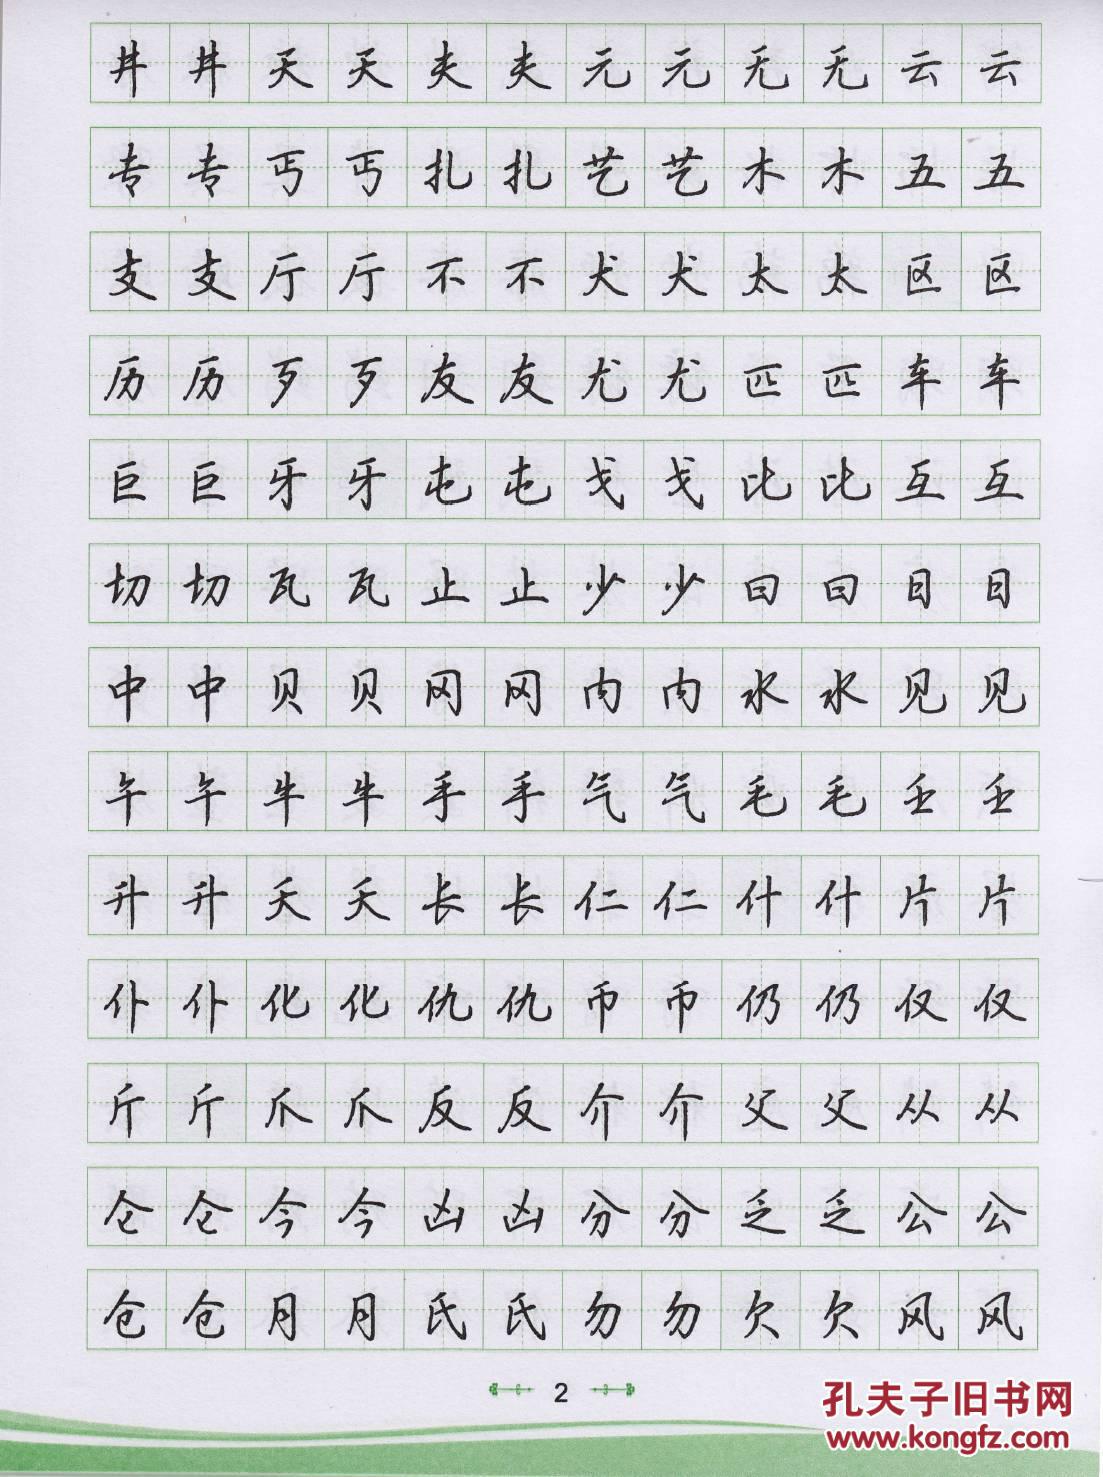 井井天天夫夫元元无无云云
专专丐丐扎扎艺艺木木五五
支支厅厅不不犬犬太太区区
历历歹歹友友尤尤匹匹车车
巨巨牙牙屯屯戈戈比比互互
切切瓦瓦止止少少曰曰日日
中中贝贝冈冈内内水水见见
午午牛牛手手气气毛毛壬壬
升升夭夭长长仁仁什什片片
仆仆化化仇仇币币仍仍仅仅
斤斤爪爪反反介介父父从从
仑仑今今凶凶分分乏乏公公
仓仓月月氏氏勿勿欠欠风风
2
孔夫子旧书网
www.kongfz.com